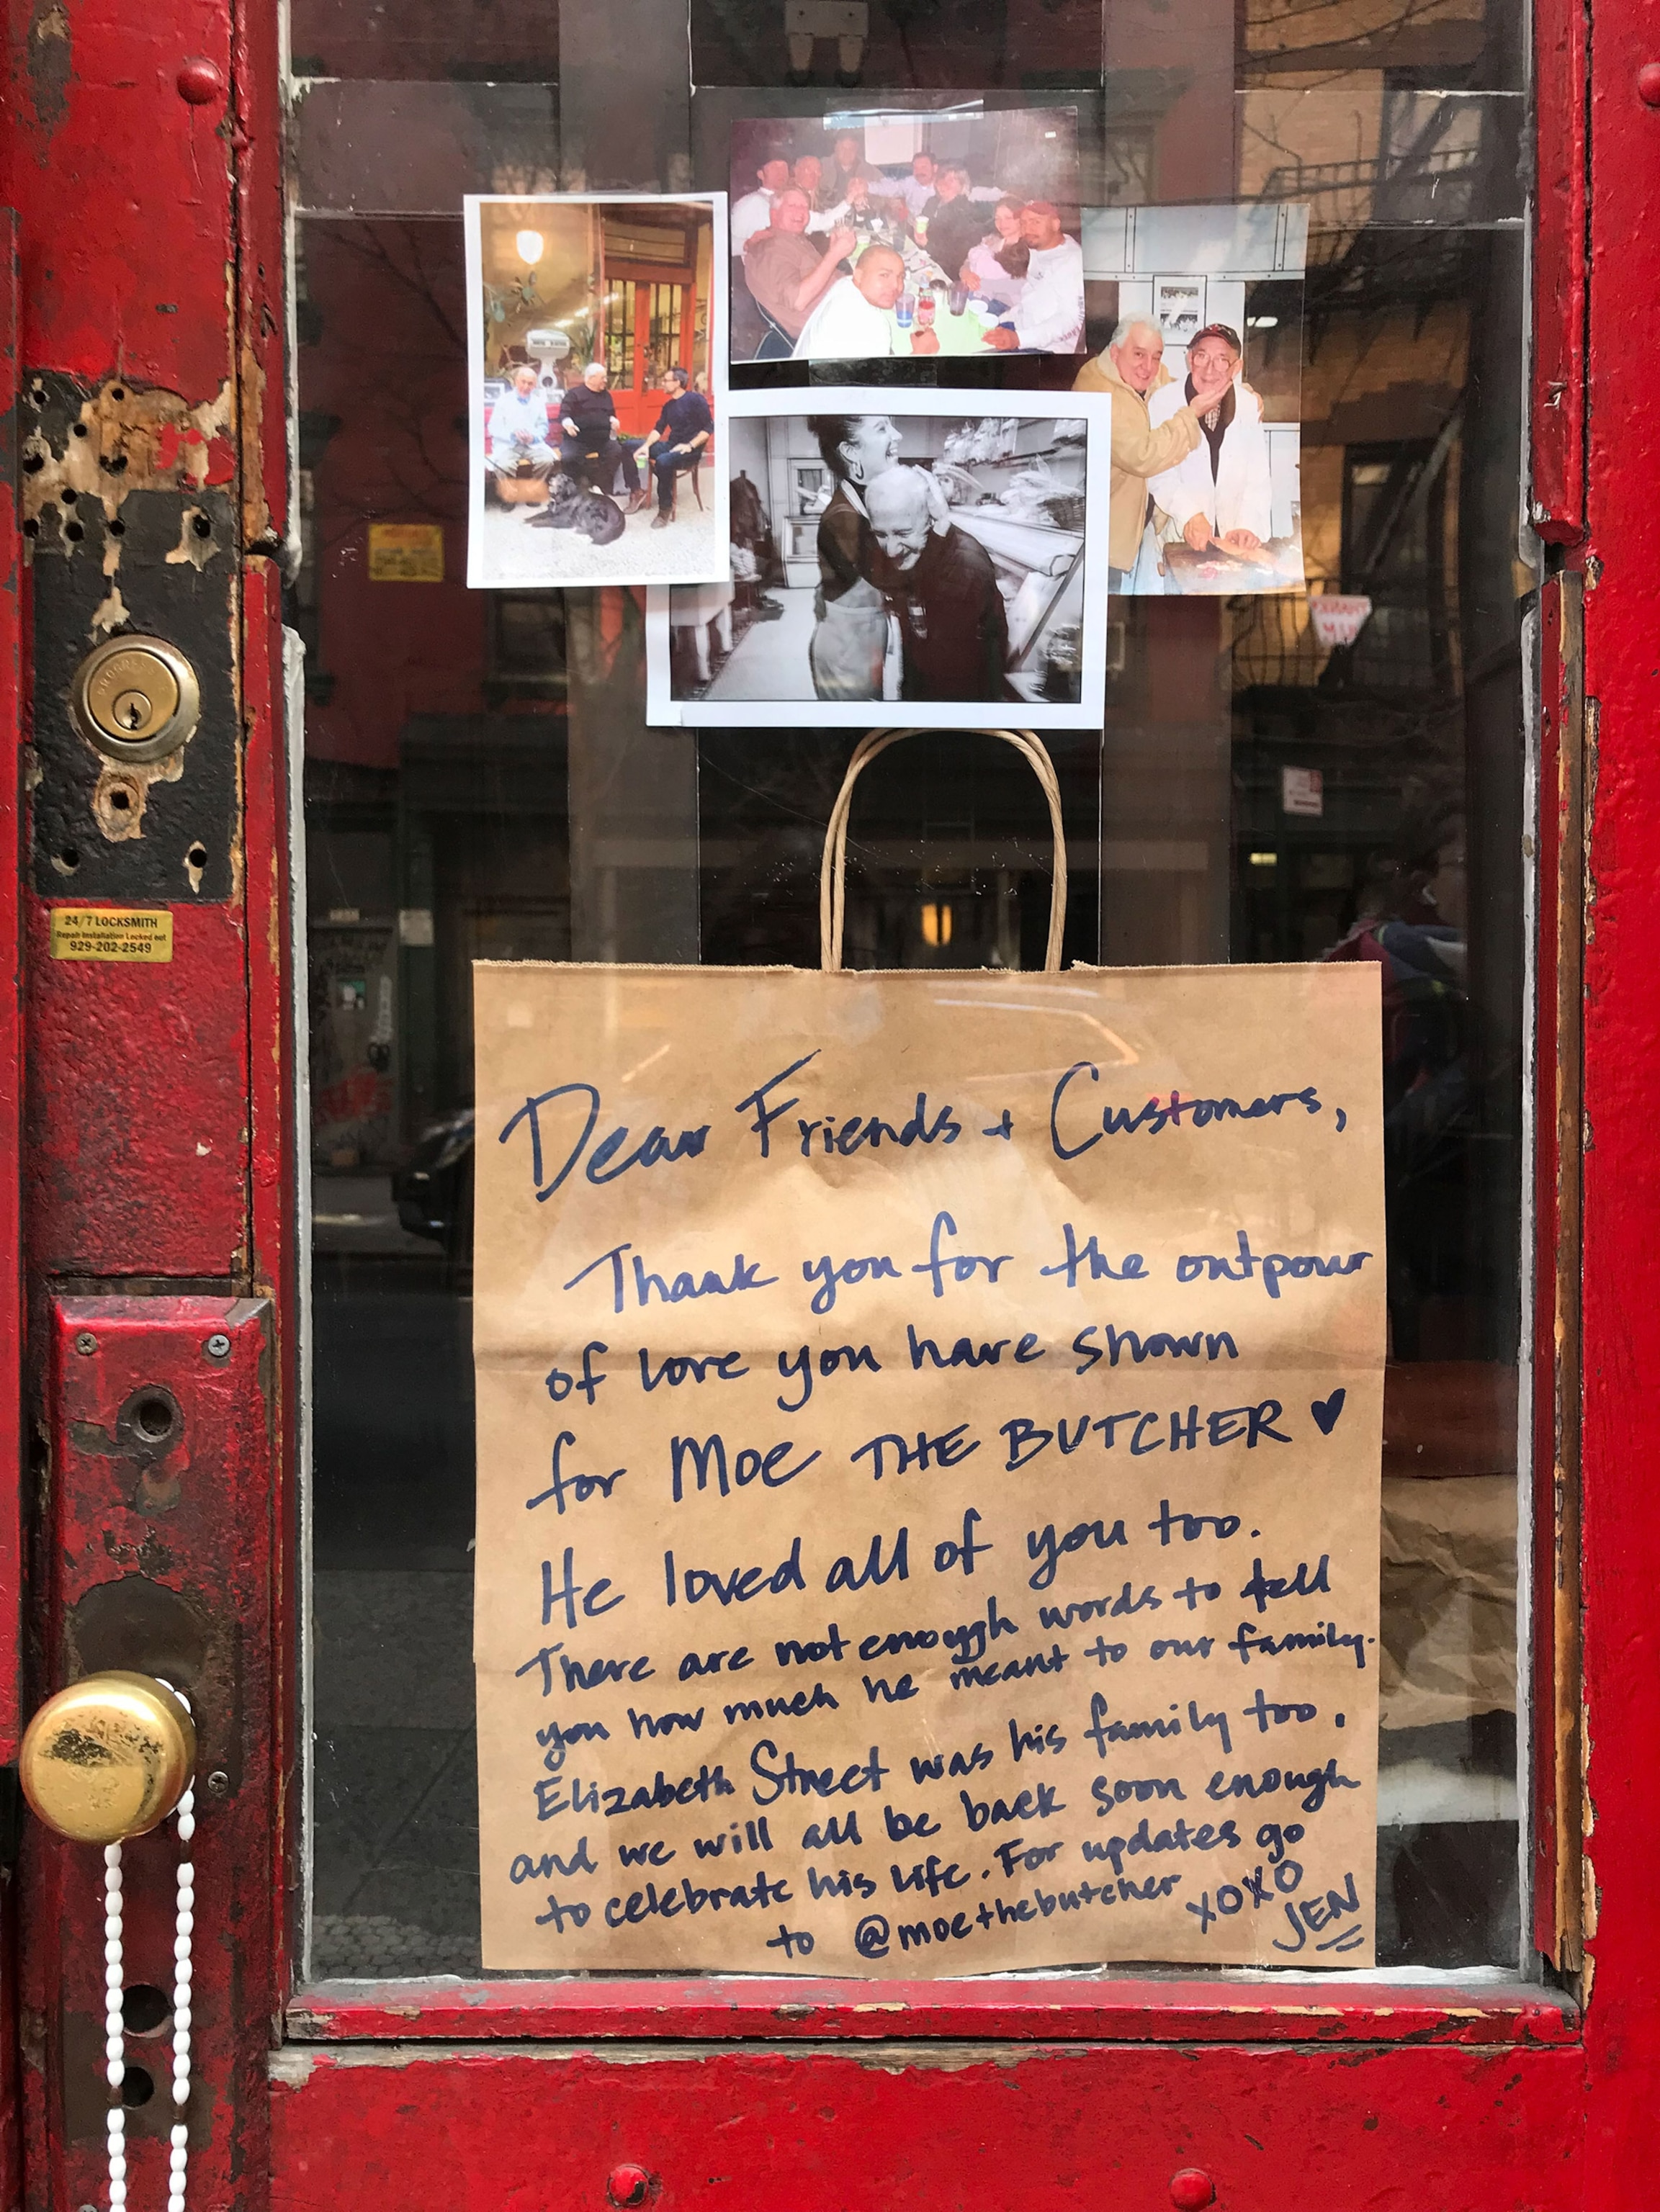 24/7 LOCKSMITH
Repair Installation Locked out
929-202-2549
Dear Friends + Customers,
Thank you for the outpour
of love you have shown
for Moe THE BUTCHER ♥
He loved all of you too.
There are not enough words to tell
you how much he meant to our family.
Elizabeth Street was his family too,
and we will all be back soon enough
to celebrate his life. For updates go
to @moethebutcher XOXO
JEN